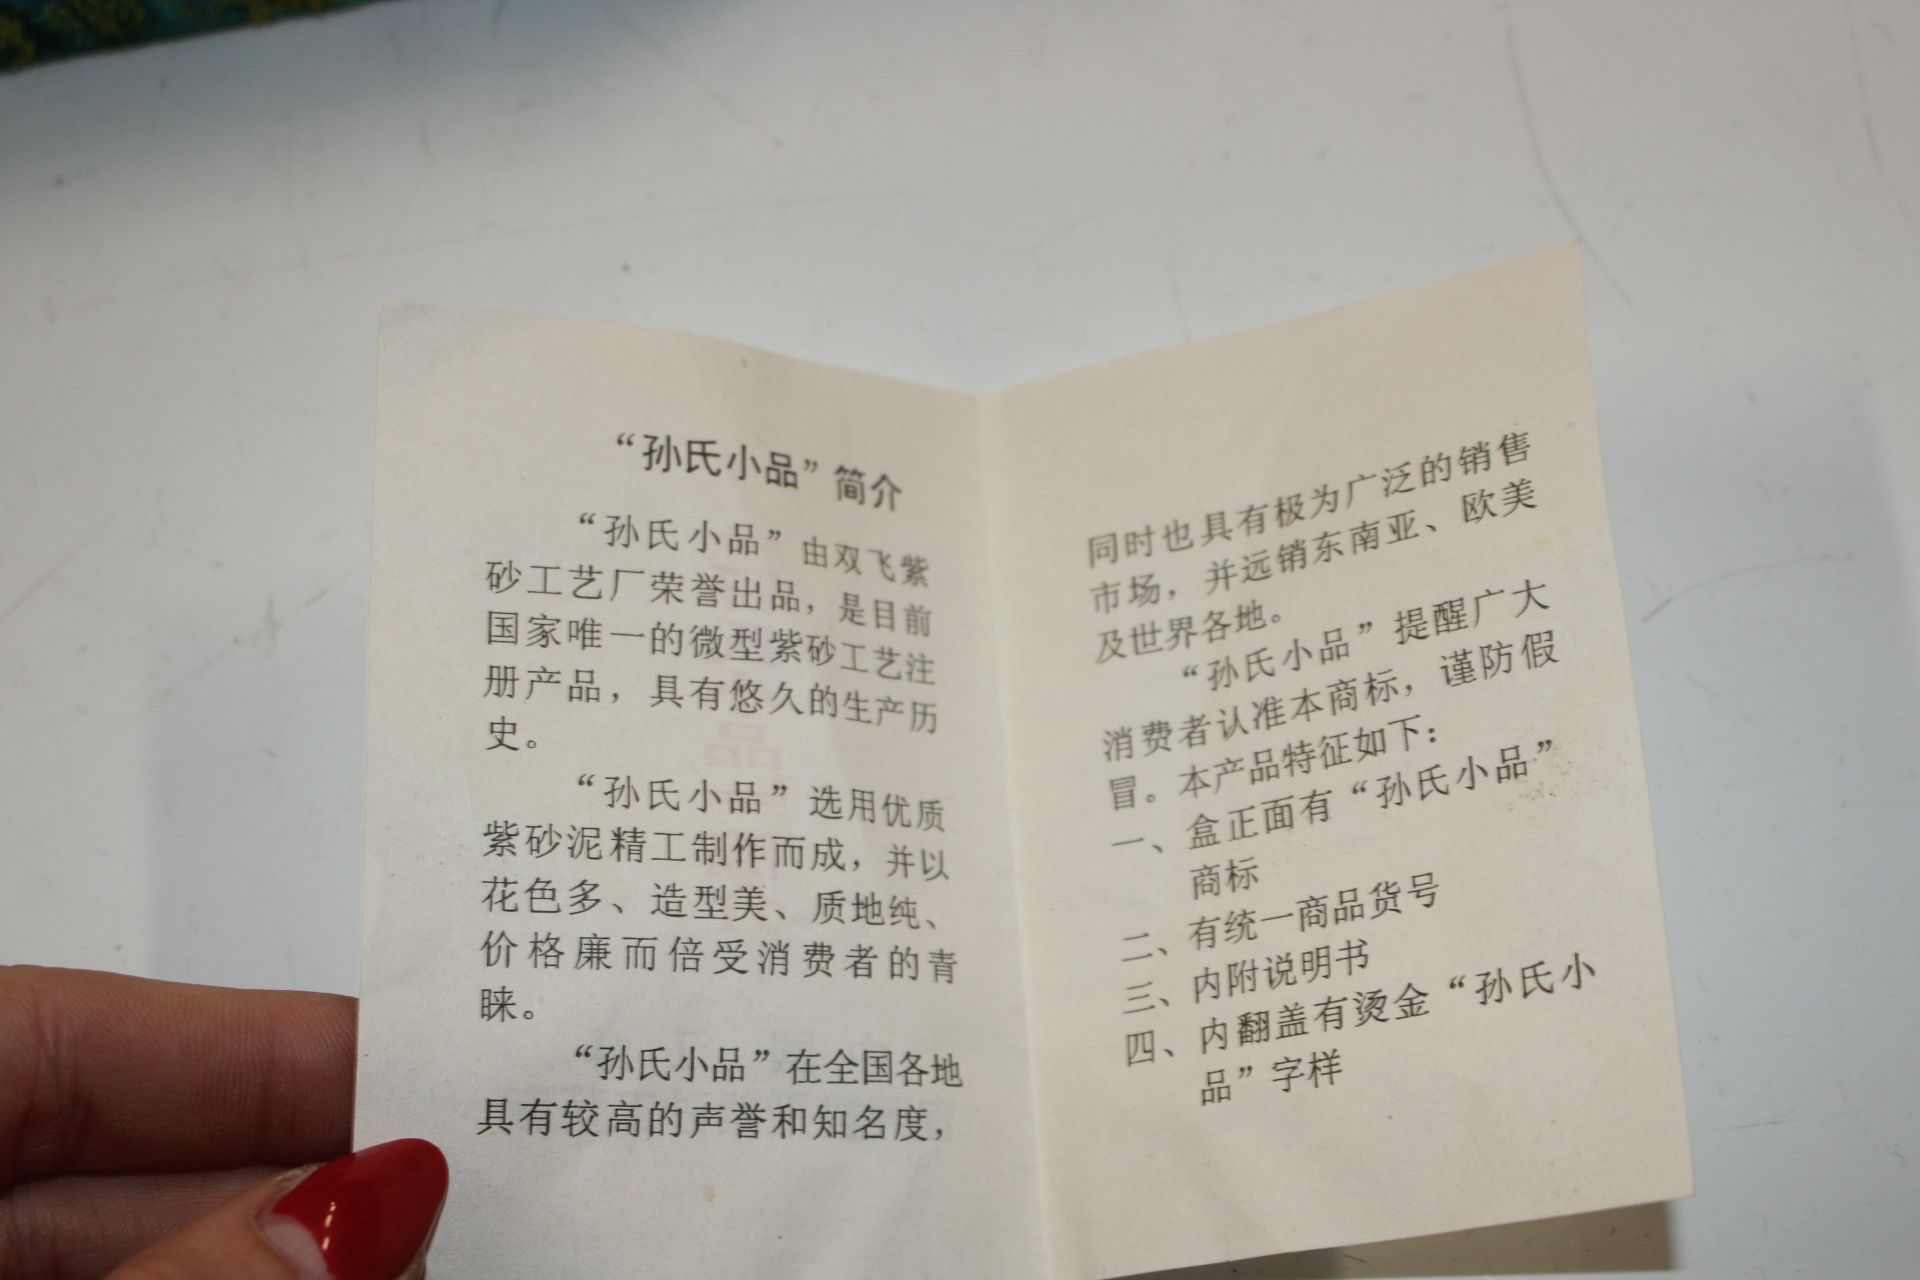 “孙氏小品”简介
“孙氏小品”由双飞紫
砂工艺厂荣誉出品，是目前
国家唯一的微型紫砂工艺注
册产品，具有悠久的生产历
史。
“孙氏小品”选用优质
紫砂泥精工制作而成，并以
花色多、造型美、质地纯、
价格廉而倍受消费者的青
睐。
“孙氏小品”在全国各地
具有较高的声誉和知名度，
同时也具有极为广泛的销售
市场，并远销东南亚、欧美
及世界各地。
“孙氏小品”提醒广大
消费者认准本商标，谨防假
冒。本产品特征如下：
一、盒正面有“孙氏小品”
商标
二、有统一商品货号
三、内附说明书
四、内翻盖有烫金“孙氏小
品”字样